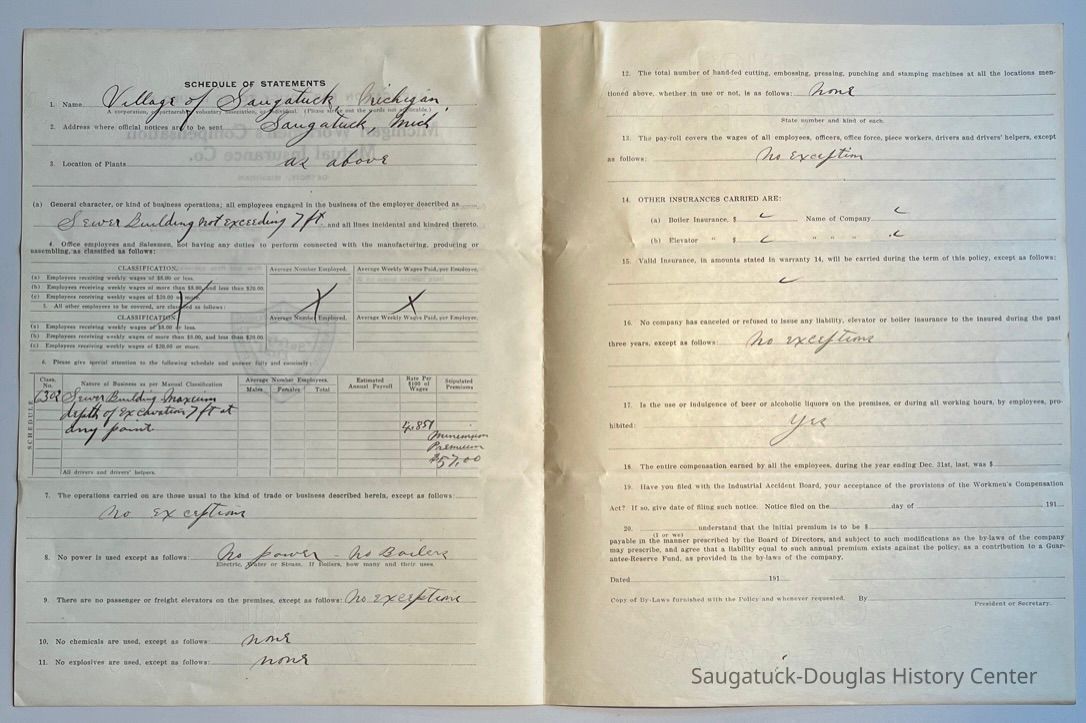 SCHEDULE OF STATEMENTS
1. Name Village of Saugatuck, Michigan,
A corporation, co-partnership, voluntary association, or individual. (Please strike out the words not applicable.)
2. Address where official notices are to be sent Saugatuck, Mich
3. Location of Plants as above
(a) General character, or kind of business operations; all employees engaged in the business of the employer described as
Sewer Building not exceeding 7 ft and all lines incidental and kindred thereto.
4. Office employees and Salesmen, not having any duties to perform connected with the manufacturing, producing or
assembling, as classified as follows:
CLASSIFICATION. Average Number Employed. Average Weekly Wages Paid, per Employee.
(a) Employees receiving weekly wages of $8.00 or less.
(b) Employees receiving weekly wages of more than $8.00, and less than $20.00.
(c) Employees receiving weekly wages of $20.00 or more.
5. All other employees to be covered, are classified as follows:
CLASSIFICATION. Average Number Employed. Average Weekly Wages Paid, per Employee.
(a) Employees receiving weekly wages of $8.00 or less.
(b) Employees receiving weekly wages of more than $8.00, and less than $20.00.
(c) Employees receiving weekly wages of $20.00 or more.
6. Please give special attention to the following schedule and answer fully and concisely:
SCHEDULE
Class. No. Nature of Business as per Manual Classification Average Number Employees. Males Females Total Estimated Annual Payroll Rate Per $100 of Wages Stipulated Premiums
302 Sewer Building Maxcum
depth of Excavation 7 ft at
any point. 4.851
Minimum
Premium
$57.00
All drivers and drivers' helpers.
7. The operations carried on are those usual to the kind of trade or business described herein, except as follows:
No exceptions
8. No power is used except as follows: No power - No Boilers
Electric, Water or Steam. If Boilers, how many and their uses.
9. There are no passenger or freight elevators on the premises, except as follows: No exceptions
10. No chemicals are used, except as follows: none
11. No explosives are used, except as follows: none
12. The total number of hand-fed cutting, embossing, pressing, punching and stamping machines at all the locations men-
tioned above, whether in use or not, is as follows: none
State number and kind of each.
13. The pay-roll covers the wages of all employees, officers, office force, piece workers, drivers and drivers' helpers, except
as follows: No exception
14. OTHER INSURANCES CARRIED ARE:
(a) Boiler Insurance, $ Name of Company
(b) Elevator " $ " " "
15. Valid Insurance, in amounts stated in warranty 14, will be carried during the term of this policy, except as follows:
16. No company has canceled or refused to issue any liability, elevator or boiler insurance to the insured during the past
three years, except as follows: No exceptions
17. Is the use or indulgence of beer or alcoholic liquors on the premises, or during all working hours, by employees, pro-
hibited: Yes
18. The entire compensation earned by all the employees, during the year ending Dec. 31st, last, was $
19. Have you filed with the Industrial Accident Board, your acceptance of the provisions of the Workmen's Compensation
Act? If so, give date of filing such notice. Notice filed on the day of , 191
20. understand that the initial premium is to be $
(I or we)
payable in the manner prescribed by the Board of Directors, and subject to such modifications as the by-laws of the company
may prescribe, and agree that a liability equal to such annual premium exists against the policy, as a contribution to a Guar-
antee-Reserve Fund, as provided in the by-laws of the company.
Dated 191
Copy of By-Laws furnished with the Policy and whenever requested. By
President or Secretary.
Saugatuck-Douglas History Center